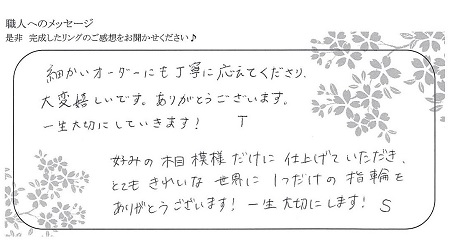 職人へのメッセージ
是非 完成したリングのご感想をお聞かせください♪
細かいオーダーにも丁寧に応えてくださり、
大変嬉しいです。ありがとうございます。
一生大切にしていきます! T
好みの木目模様だけに仕上げていただき、
とてもきれいな世界に1つだけの指輪を
ありがとうございます! 一生大切にします! S